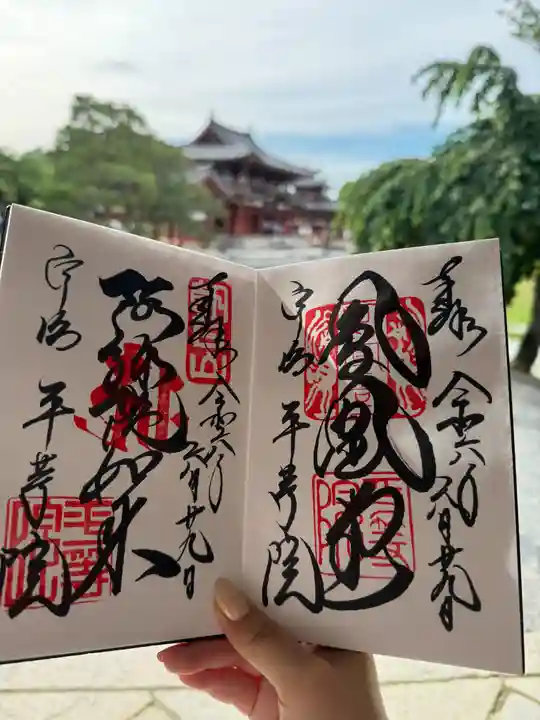 奉拝 令和六年六月廿九日
鳳凰堂
宇治 平等院
奉拝 令和六年六月廿九日
阿弥陀如来
宇治 平等院